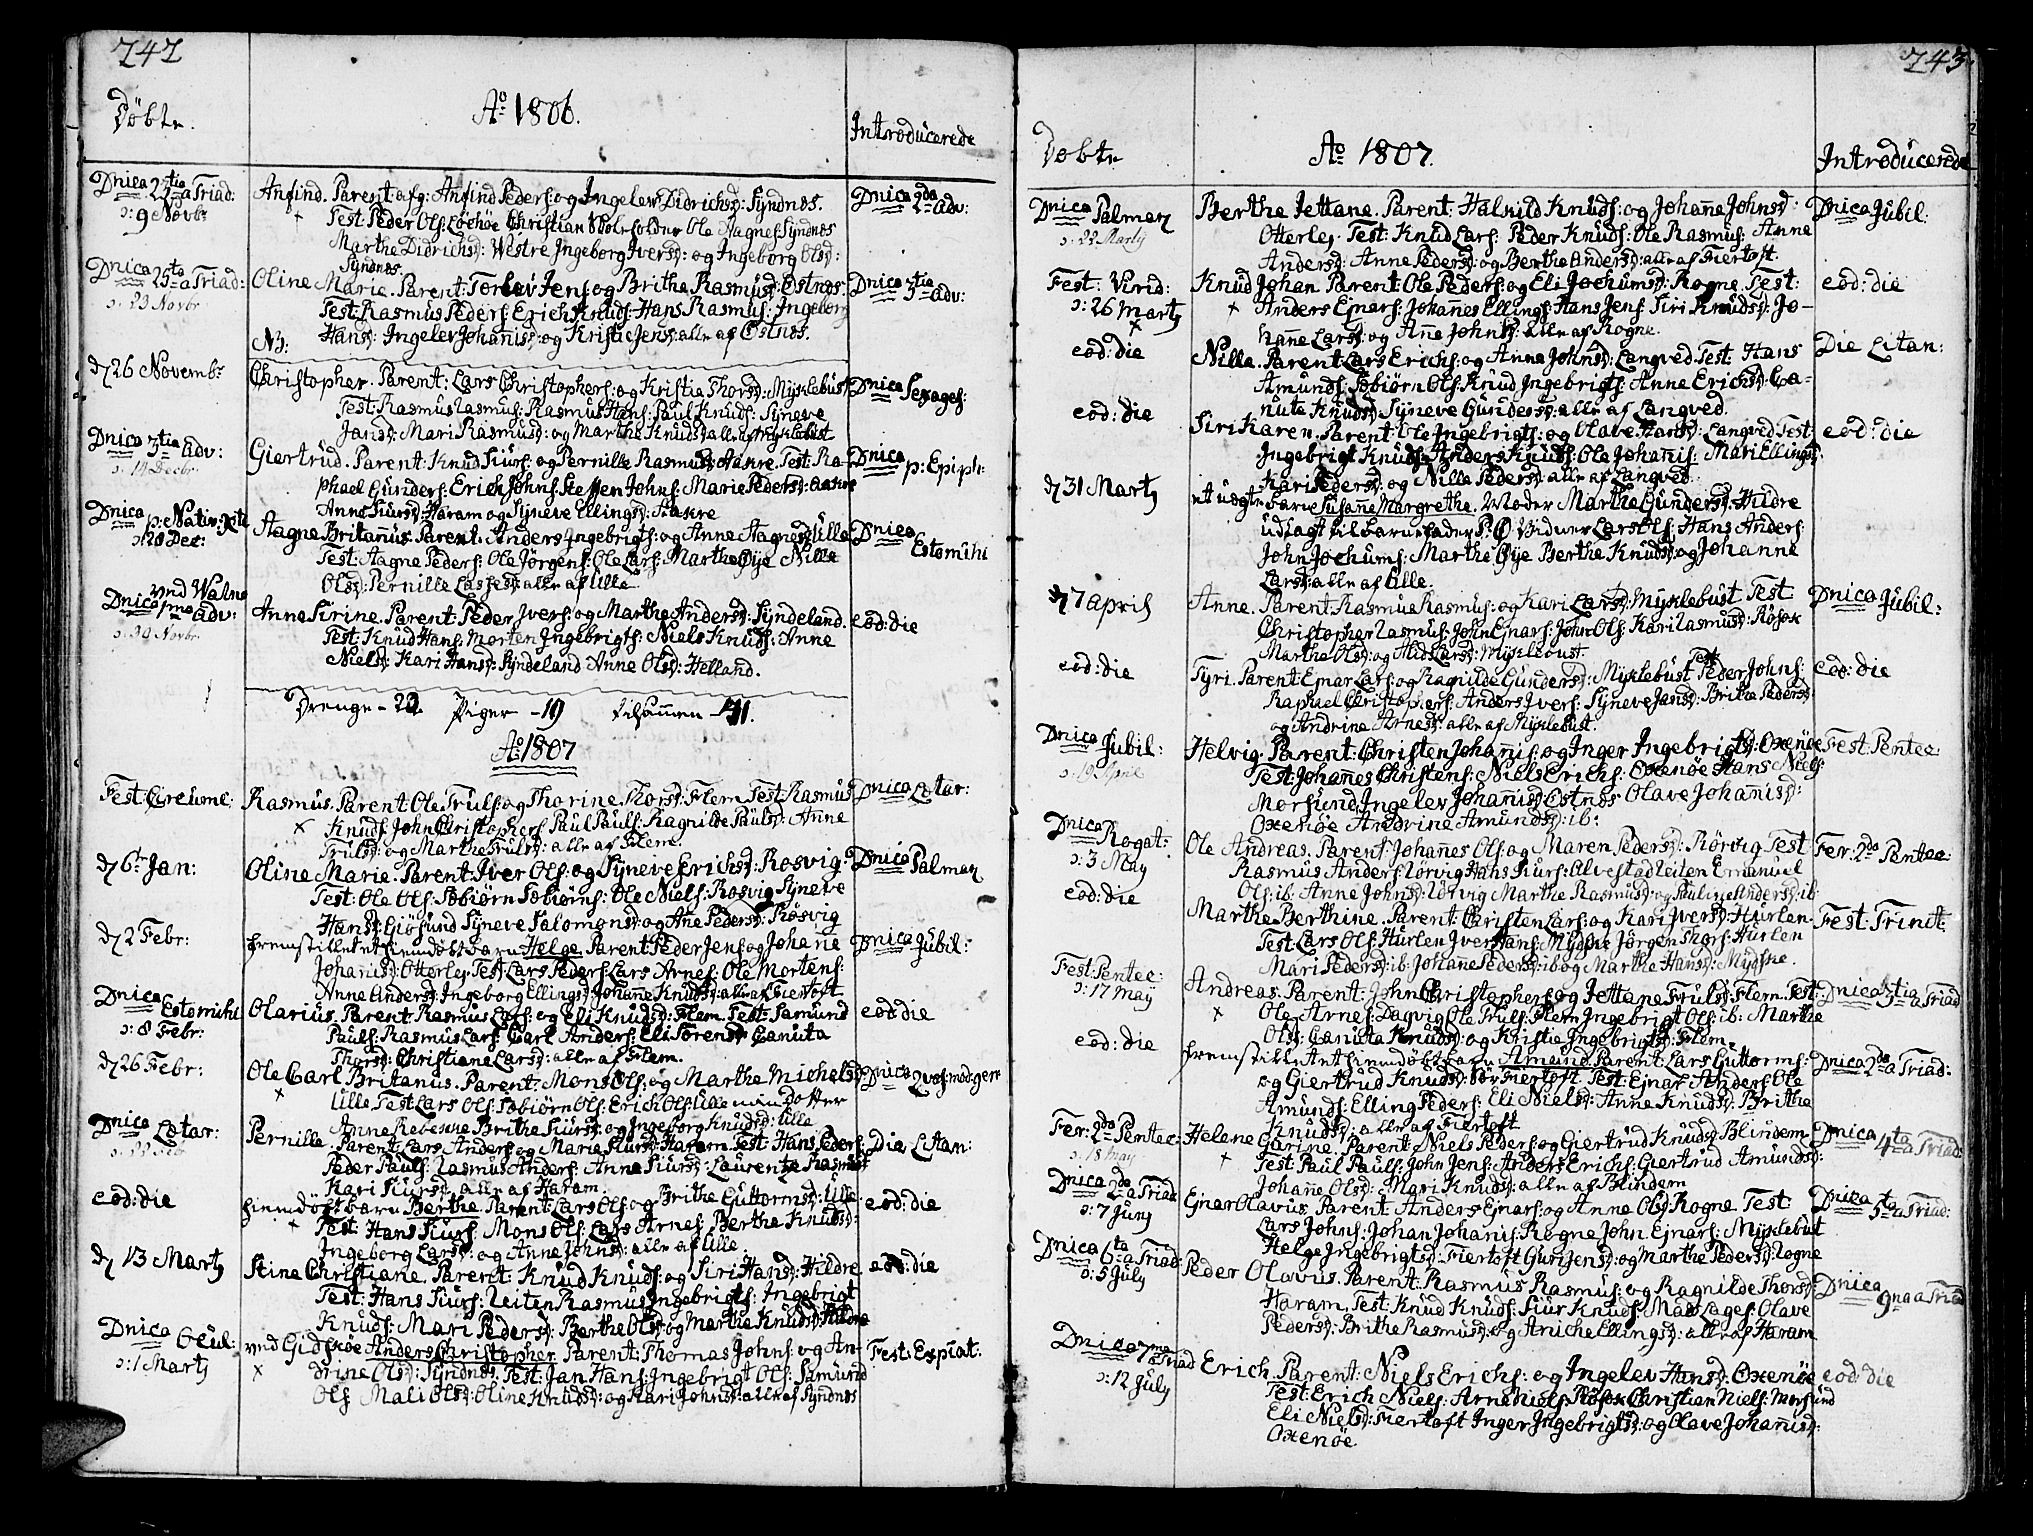 242
Døbte.
Ao 1806.
Introducerede
Dnica 23tia a Triad:
ɔ: 9 Novbr
Anfind. Parent afg: Anfind Peders: og Ingelev Didrichsd: Syndnes.
Test: Peder Ols: Løehöe Christian Skoleholder Ole Hagnes: Syndnes
Marthe Didrichsd: Westre Ingeborg Iversd: og Ingeborg Olsd:
Syndnes.
Dnica 2da adv:
Dnica 25ta a Triad:
ɔ: 23 Novbr
Oline Marie. Parent: Torlev Jens: og Brithe Rasmusd: Ostnes.
Test: Rasmus Peders: Erich Knuds: Hans Rasmus: Ingeborg
Hansd: Ingelev Johanisd: og Kristie Jensd: alle af Ostnes.
Dnica 3tia adv:
NB:
d 26 Novembr
Christopher. Parent: Lars Christophers: og Kristie Thorsd: Myklebust
Test: Rasmus Rasmus: Rasmus Hans: Paul Knuds: Syneve
Jansd: Mari Rasmusd: og Marthe Knudsd: alle af Myklebust
Dnica Sexages:
Dnica 3tia Adv:
ɔ: 14 Decbr
Giertrud. Parent: Knud Siurs: og Pernille Rasmusd: Aakre. Test: Ra-
phael Gunders: Erich Johns: Steffen Johns: Marie Pedersd: Aakre
Anne Siursd: Haram og Syneve Ellingsd: Aakre
Dnica p: Epiph:
Dnica p: Nativ: Xti
ɔ: 28 Dec:
Aagne Britanus. Parent: Anders Ingebrigts: og Anne Aagnesd: Ulle
Test: Hagne Peders: Ole Jørgens: Ole Lars: Marthe Øye Nille
Olsd: Pernille Lassesd: alle af Ulle
Dnica Estomihi
ved Walnö
Dnica 1ma adv:
ɔ: 30 Novbr.
Anne Sirine. Parent: Peder Ivers: og Marthe Andersd: Syndeland.
Test: Knud Hans: Morten Ingebrigts: Niels Knuds: Anne
Nielsd: Kari Hansd: Syndeland Anne Olsd: Helland.
eod: die
Drenge - 22 Piger - 19 tilsammen - 41.
Ao 1807
Fest: Circumc:
Rasmus. Parent: Ole Truls: og Thorine Thorsd: Flem Test: Rasmus
Knuds: John Christophers Paul Pauls: Ragnilde Paulsd: Anne
Trulsd: og Marthe Trulsd: alle af Flem.
Dnica Letar:
d 6te Jan:
Oline Marie. Parent: Iver Ols: og Syneve Erichsd: Rosvig.
Test: Ole Ols: Tobiörn Tobiörns: Ole Niels: Rosvig Syneve
Hansd: Giösund Syneve Salomonsd: og Ane Pedersd: Rösvig
Dnica Palmar
d 2 Febr:
fremstillet et hiemdöbt barn Helge Parent: Peder Jens: og Johane
Johanisd: Otterlei Test: Lars Peders: Lars Arnes: Ole Mortens:
Anne Andersd: Ingeborg Ellingsd: Johanne Knudsd: alle af Fiertoft
Dnica Jubil:
Dnica Estomihi
ɔ: 8 Febr:
Olarius. Parent: Rasmus Lars: og Eli Knudsd: Flem. Test: Samund
Pauls: Rasmus Lars: Carl Anders: Eli Sorensd: Canuta
Thorsd: Christiane Larsd: alle af Flem.
eod die
d 26 Febr:
Ole Carl Britanus. Parent: Mons Ols: og Marthe Michelsd:
Ulle. Test: Lars Ols: Tobiörn Ols: Erich Ols: Ulle
Anne Rebecke Brithe Siursd: og Ingeborg Knudsd: Ulle
Dnica Qvasimodogen
Dnica Letar:
Pernille. Parent: Lars Anders: og Marie Siursd: Haram. Test: Hans Peders:
Peder Pauls: Rasmus Anders: Anne Siursd: Laurentze Rasmusd:
Kari Siursd: alle af Haram.
Die Litan:
eod: die
hiemdöbt barn Berthe Parent: Lars Ols: og Brithe Guttormsd: Ulle
Test: Hans Siurs: Mons Ols: Lars Arnes: Berthe Knudsd:
Ingeborg Larsd: og Anne Johnsd: alle af Ulle.
eod: die
d 13 Marts
Stine Christiane. Parent: Knud Knuds: og Siri Hansd: Hildre
Test: Hans Siurs: Leiten Rasmus Ingebrigts: Ingebrigt
Knuds: Mari Pedersd: Berthe Olsd: og Marthe Knudsd: Hildre
eod: die
Dnica Ocul:
ɔ: 1 Marts
ved Gidskøe Anders Christopher. Parent: Thomas Johns: og An-
drine Olsd: Syndnes Test: Jan Hans: Ingebrigt Ols: Samund
Ols Mali Olsd: Oline Knudsd: og Kari Johnsd: alle af Syndnes
Fest: Expiat:
243
Døbte
Ao 1807.
Introducerede
Dnica Palmar
ɔ: 22 Martij
Berthe Jettane. Parent: Halkild Knuds: og Johane Johnsd:
Otterlej. Test: Knud Lars: Peder Knuds: Ole Rasmus: Anne
Andersd: Anne Pedersd: og Berthe Andersd: alle af Fiertoft.
Dnica Jubil:
Fest: Virid:
ɔ: 26 Marts
Knud Johan Parent: Ole Peders: og Eli Jochumsd: Rogne. Test:
Anders Ejnars: Johanes Ellings: Hans Jens: Siri Knudsd: Jo-
hanne Larsd: og Ane Johnsd: alle af Rogne.
eod: die
eod: die
Nille. Parent: Lars Erichs: og Anna Johnsd: Langved. Test: Hans
Amunds: Tobiörn Ols: Knud Ingebrigts: Anne Erichsd: Ca-
nuta Knudsd: Syneve Gundersd: alle af Langved.
Die Litan:
eod: die
Siri Karen. Parent: Ole Ingebrigts: og Olave Hansd: Langved Test:
Ingebrigt Knuds: Anders Knuds: Ole Johanis: Mari Ellingsd:
Kari Pedersd: og Nille Pedersd: alle af Langved.
eod: die
d 31 Marts
et uægte barn Susane Margrethe. Moder Marthe Gundersd: Hildre
udlagt til barnefader Lars Ols: Hans Anders:
John Jochums: Marthe Øye Berthe Knudsd: og Johanne
Larsd: alle af Ulle.
d 7 April
Anne. Parent: Rasmus Rasmus: og Kari Larsd: Myklebust Test
Christopher Rasmus: John Ejnars: John Ols: Kari Rasmusd: Rösok
Marthe Olsd: og Larsd: Myklebust.
Dnica Jubil:
eod: die
Tyri. Parent: Ejnar Lars: og Ragnilde Gundersd: Myklebust Test Peder Johns:
Raphael Christophers: Anders Ivers: Syneve Jansd: Brithe Pedersd:
og Andrine Arnesd: alle af Myklebust.
eod: die
Dnica Jubil:
ɔ: 19 April
Helvig. Parent: Christen Johanis: og Inger Ingebrigtsd: Oxenöe
Test: Johanes Christens: Niels Erichs: Oxenöe Hans Niels:
Morsund Ingelev Johanisd: Estnes Olave Johanisd:
Oxenöe Andrine Amundsd: ib:
Fest: Pentec:
Dnica Rogat:
ɔ: 3 May
Ole Andreas. Parent: Johanes Ols: og Maren Pedersd: Rörvig Test
Rasmus Anders: Rörvig Hans Siurs: Alvestad Leiten Emanuel
Ols: ib: Anne Johnsd: Rörvig Marthe Rasmusd: og Pauline Andersd: ib:
Fer: 2da Pentec:
eod: die
Marthe Berthine. Parent: Christen Lars: og Kari Iversd: Hurlen.
Test: Lars Ols: Hurlen Iver Hans: Mydske Jörgen Thors: Hurlen
Mari Pedersd: ib: Johane Pedersd: ib: og Marthe Hansd: Mydske.
Fest: Trinit.
Fest: Pentec:
ɔ: 17 May
Andreas. Parent: John Christophers: og Jettane Trulsd: Flem. Test:
Ole Arnes: Dagvig Ole Truls: Flem Ingebrigt Ols: ib: Marthe
Olsd: Canuta Knudsd: og Kristie Ingebrigtsd: Flem.
Dnica 3tia a Triad
eod: die
fremstillet et hiemdöbt barn Amund. Parent: Lars Guttorms:
og Giertrud Knudsd: Fiertoft Test: Ejnar Anders: Ole
Amunds: Elling Peders: Eli Nielsd: Anne Knudsd: Brithe
Knudsd: alle af Fiertoft
Dnica 2da a Triad:
Fer: 2da Pentec:
ɔ: 18 May
Helene Carine. Parent: Niels Peders: og Giertrud Knudsd: Blindem
Test: Paul Pauls: John Jens: Anders Erichs: Giertrud Amundsd:
Johane Olsd: Mari Knudsd: alle af Blindem
Dnica 4ta a Triad
Dnica 2da a Triad
ɔ: 7 Juny
Ejnar Olavus. Parent: Anders Ejnars: og Anne Olsd: Rogne Test
Lars Johns: Johan Johanis: Rogne John Ejnars: Myklebust
Helge Ingebrigtsd: Fiertoft Guri Jensd: og Marthe Pedersd: Rogne
Dnica 5ta a Triad:
Dnica 6ta a Triad:
ɔ: 5 July
Peder Olavus. Parent: Rasmus Rasmus: og Ragnilde Thorsd:
Haram. Test: Knud Knuds: Siur Knuds: Mads Lages: Olave
Pedersd: Brithe Rasmusd: og Anich Ellingsd: alle af Haram
Dnica 9na a Triad
Dnica 7ma a Triad
ɔ: 12 July
Erich. Parent: Niels Erichs: og Ingelev Hansd: Oxenöe
Test: Erich Niels: Arne Niels: Rösok Christian Niels: Morsund
Eli Nielsd: Fiertoft Inger Ingebrigtsd: og Olave Johanisd:
Oxenöe
eod: die